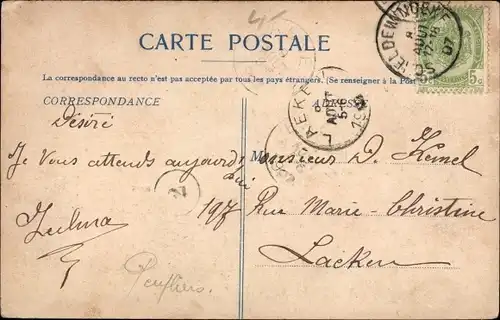 CARTE POSTALE
La correspondance au recto n'est pas acceptée par tous les pays étrangers. (Se renseigner à la Post
CORRESPONDANCE
ADRESSE
Désiré
Je Vous attends aujourd
hui
Zulma
Monsieur D.
197 Rue Marie-Christine
Laeken
LAEKEN
8
AOUT
5-
19
8
AOUT
17-18
07
5c